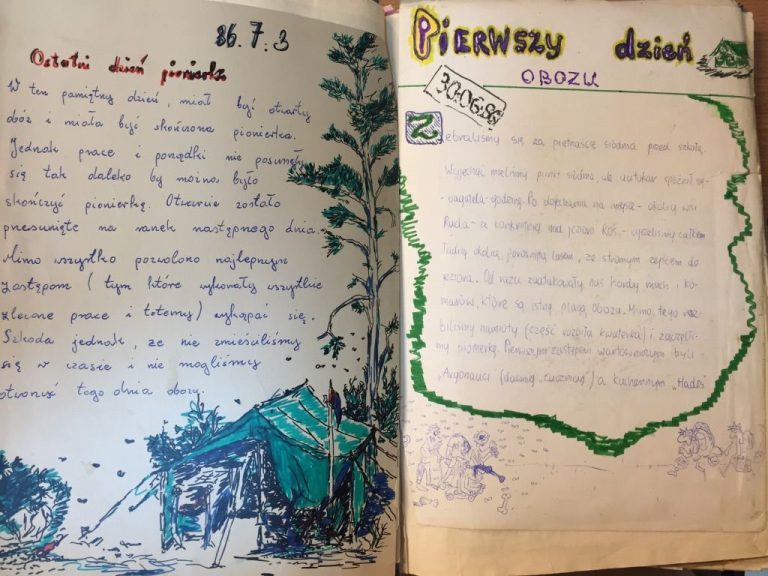 86.7.3
Ostatni dzień pionierka
W ten pamiętny dzień, miał być otwarty
obóz i miała być skończona pionierka.
Jednak prace i porządki nie posunęły
się tak daleko by można było
skończyć pionierkę. Otwarcie zostało
przesunięte na ranek następnego dnia.
Mimo wszystko pozwolono najlepszym
zastępom (tym które wykonały wszystkie
zlecone prace i totemy) wykąpać się.
Szkoda jednak, że nie zmieściliśmy
się w czasie i nie mogliśmy
otworzyć tego dnia obozu.
PIERWSZY dzień
OBOZU
30.06.86
Zebraliśmy się za piętnaście siódma przed szkołą.
Wyjechać mieliśmy punkt siódma, ale autokar spóźnił się
o godzinę. Po dojechaniu na miejsce - okolicy wsi
Ruda - a konkretniej nad jezioro KOŚ - ujrzeliśmy całkiem
ładną okolicę, porośniętą lasem, ze stromym zejściem do
jeziora. Od razu zaatakowały nas hordy much i ko-
marów, które są istną plagą obozu. Mimo tego roz-
biliśmy namioty (część rozbiła kwaterka) i zaczęliś-
my pionierkę. Pierwszym zastępem wartowniczym byli
"Argonauci (dawniej) a kuchennym "Hades"